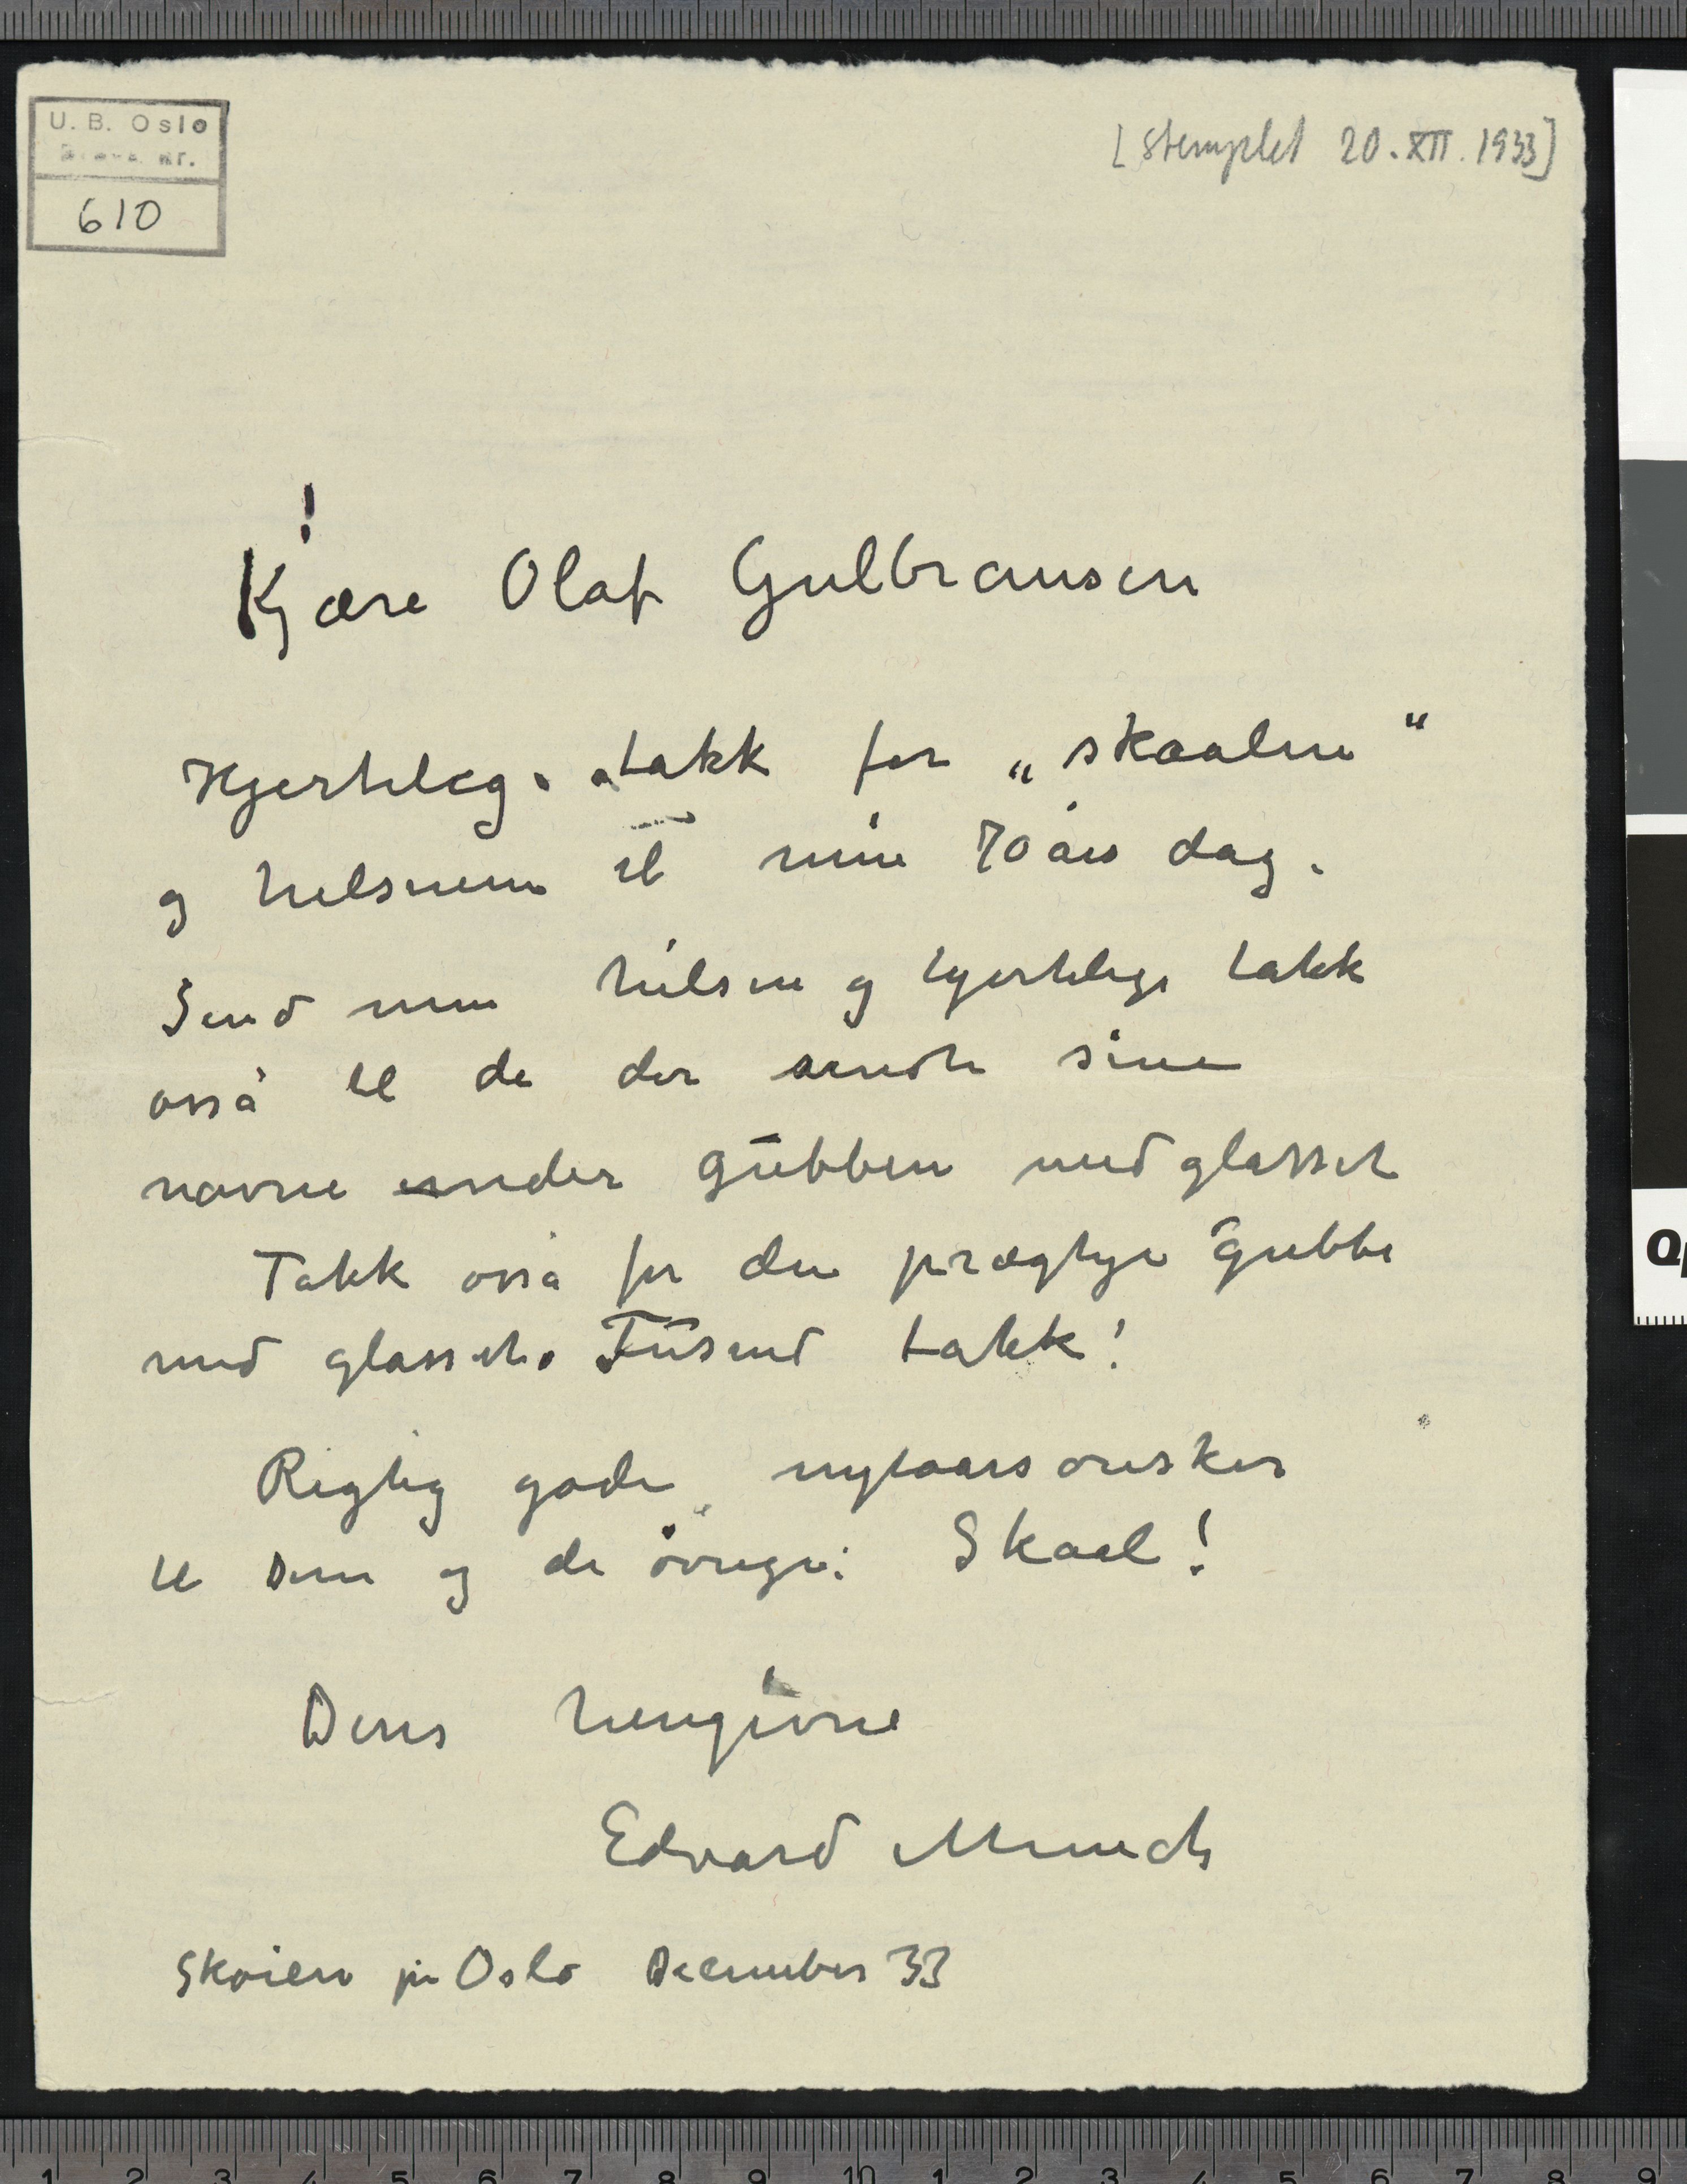 U. B. Oslo
Brevs. nr.
610
[Stemplet 20. XII. 1933]
!
Kjære Olaf Gulbransen
Hjertelig takk for „skaalen“
og helsenen til min 70 års dag.
Send min hilsen og hjertelige takk
osså til de der sendte sine
navne under gubben med glasset
Takk osså for den prægtige gubbe
med glasset. Tusend takk!
Rigtig gode nytaarsønsker
til Dem og de øvrige: Skaal!
Deres hengivne
Edvard Munch
Skøien pr Oslo December 33
1 2 3 4 5 6 7 8 9 10 1 2 3 4 5 6 7 8 9